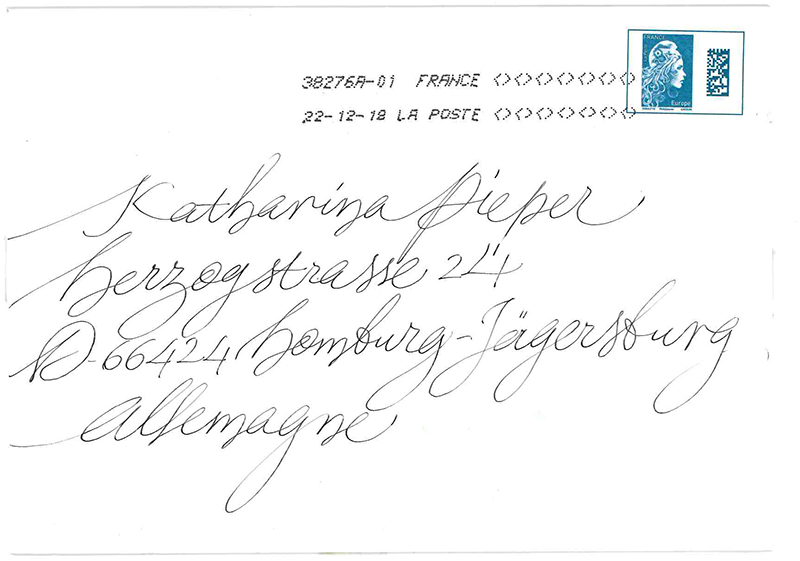 FRANCE
38276A-01 FRANCE
Europe
22-12-18 LA POSTE
Katharina Pieper
Herzogstrasse 24
D-66424 Homburg-Jägersburg
Allemagne